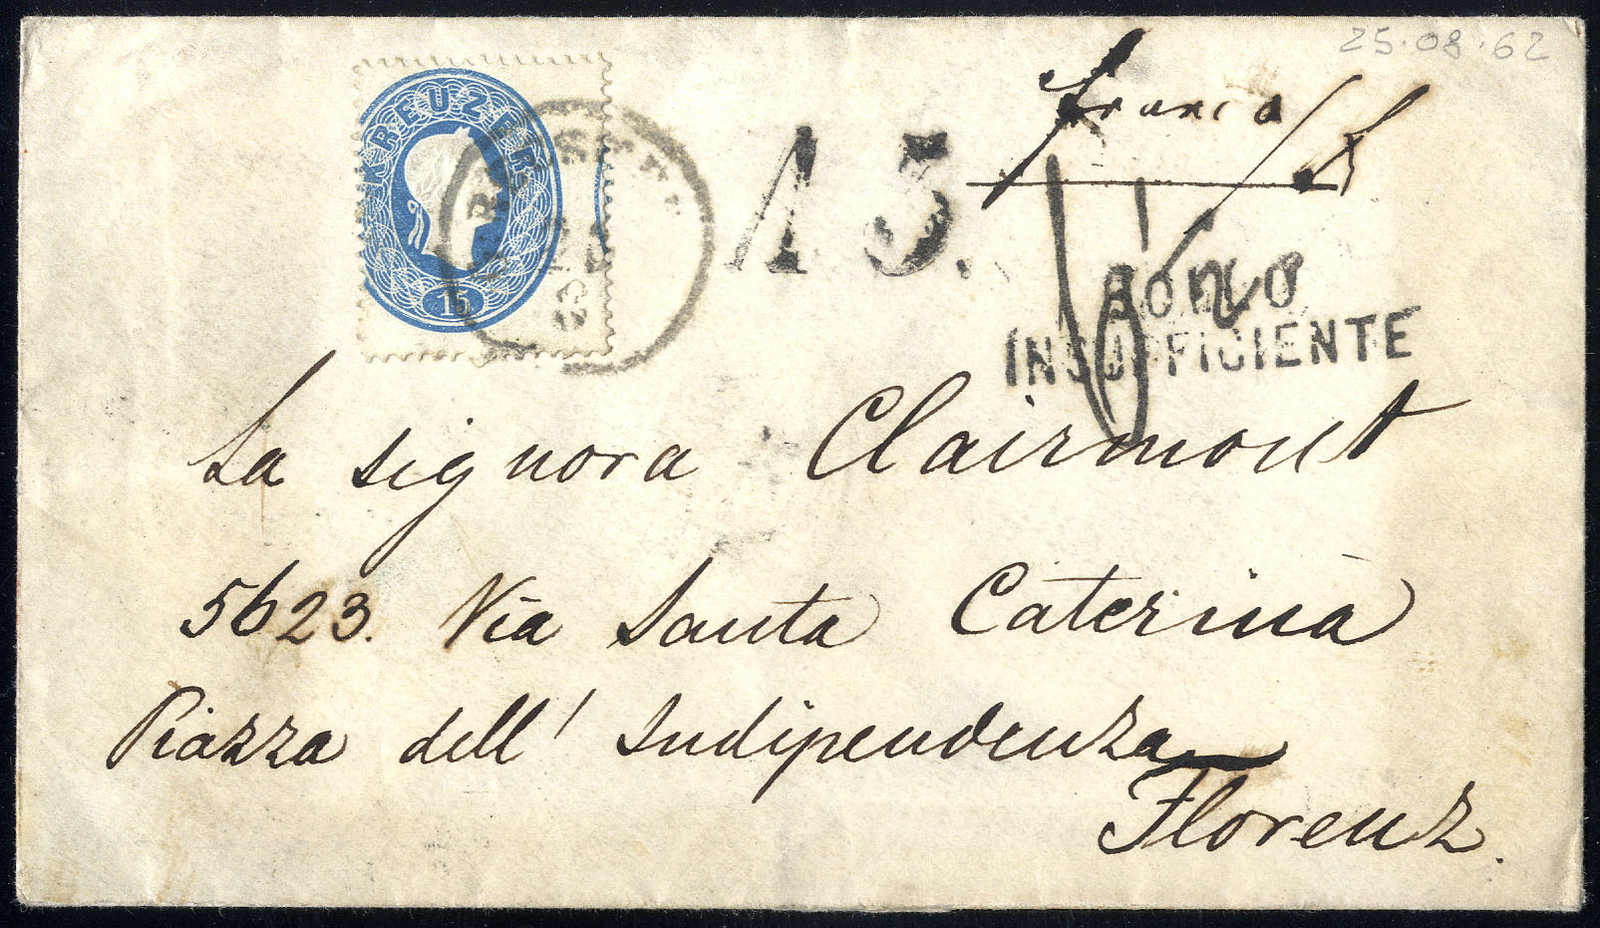 25.08.62
franco
KREUZER
15
TRIEST
15.
BOLLO
INSUFFICIENTE
La signora Clairmont
5623. Via Santa Caterina
Piazza dell' Indipendenza
Florenz.